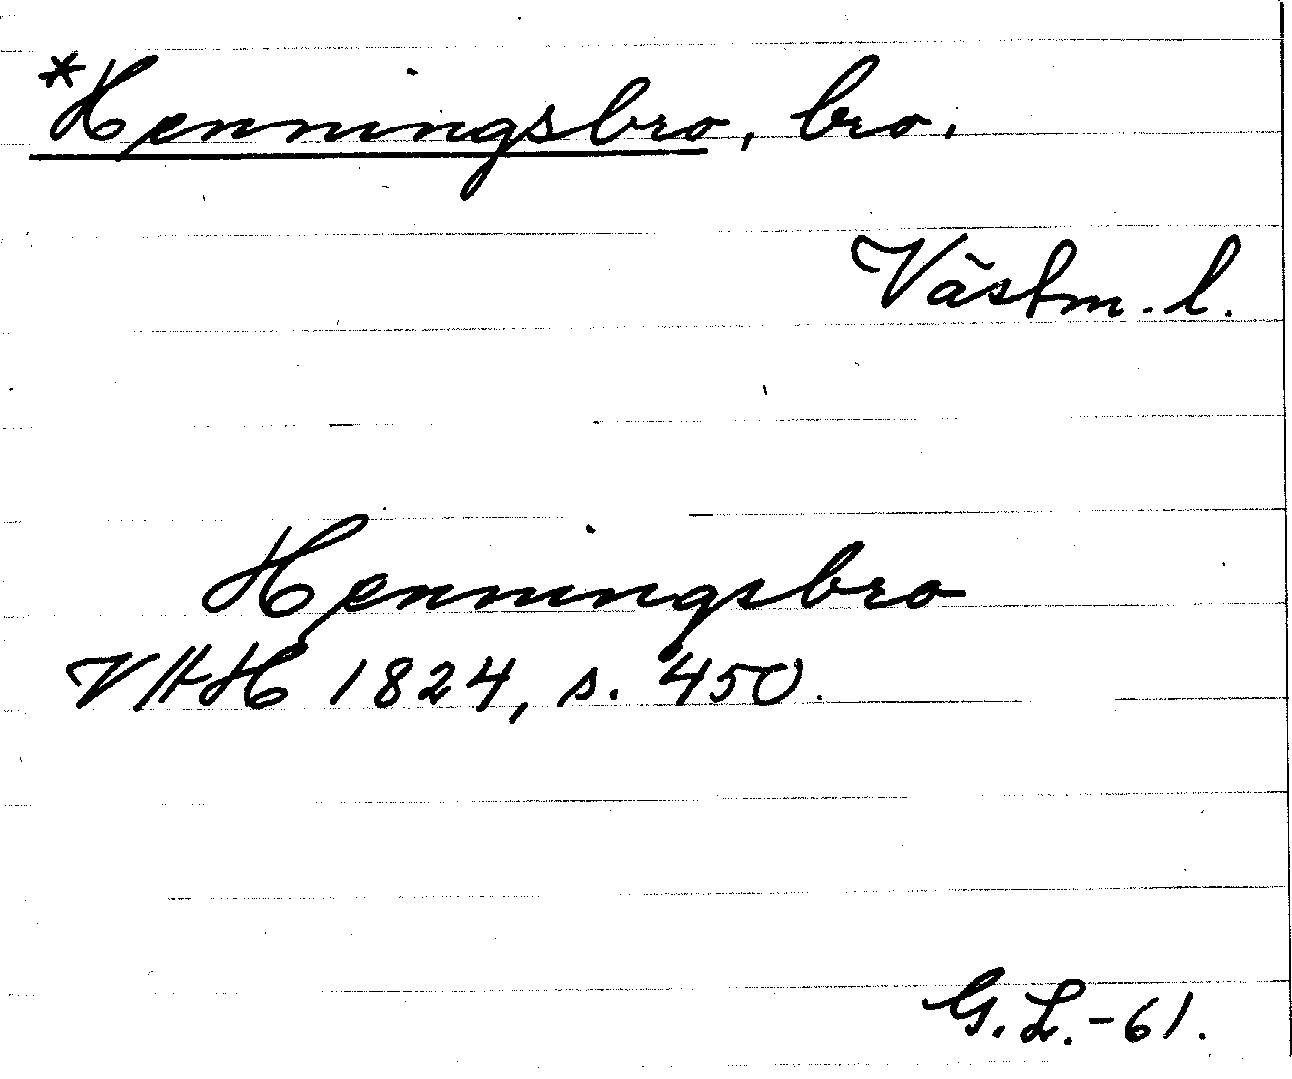 *Henningsbro, bro.
Västm. l.
Henningsbro
VHH 1824, s. 450.
G. L. -61.